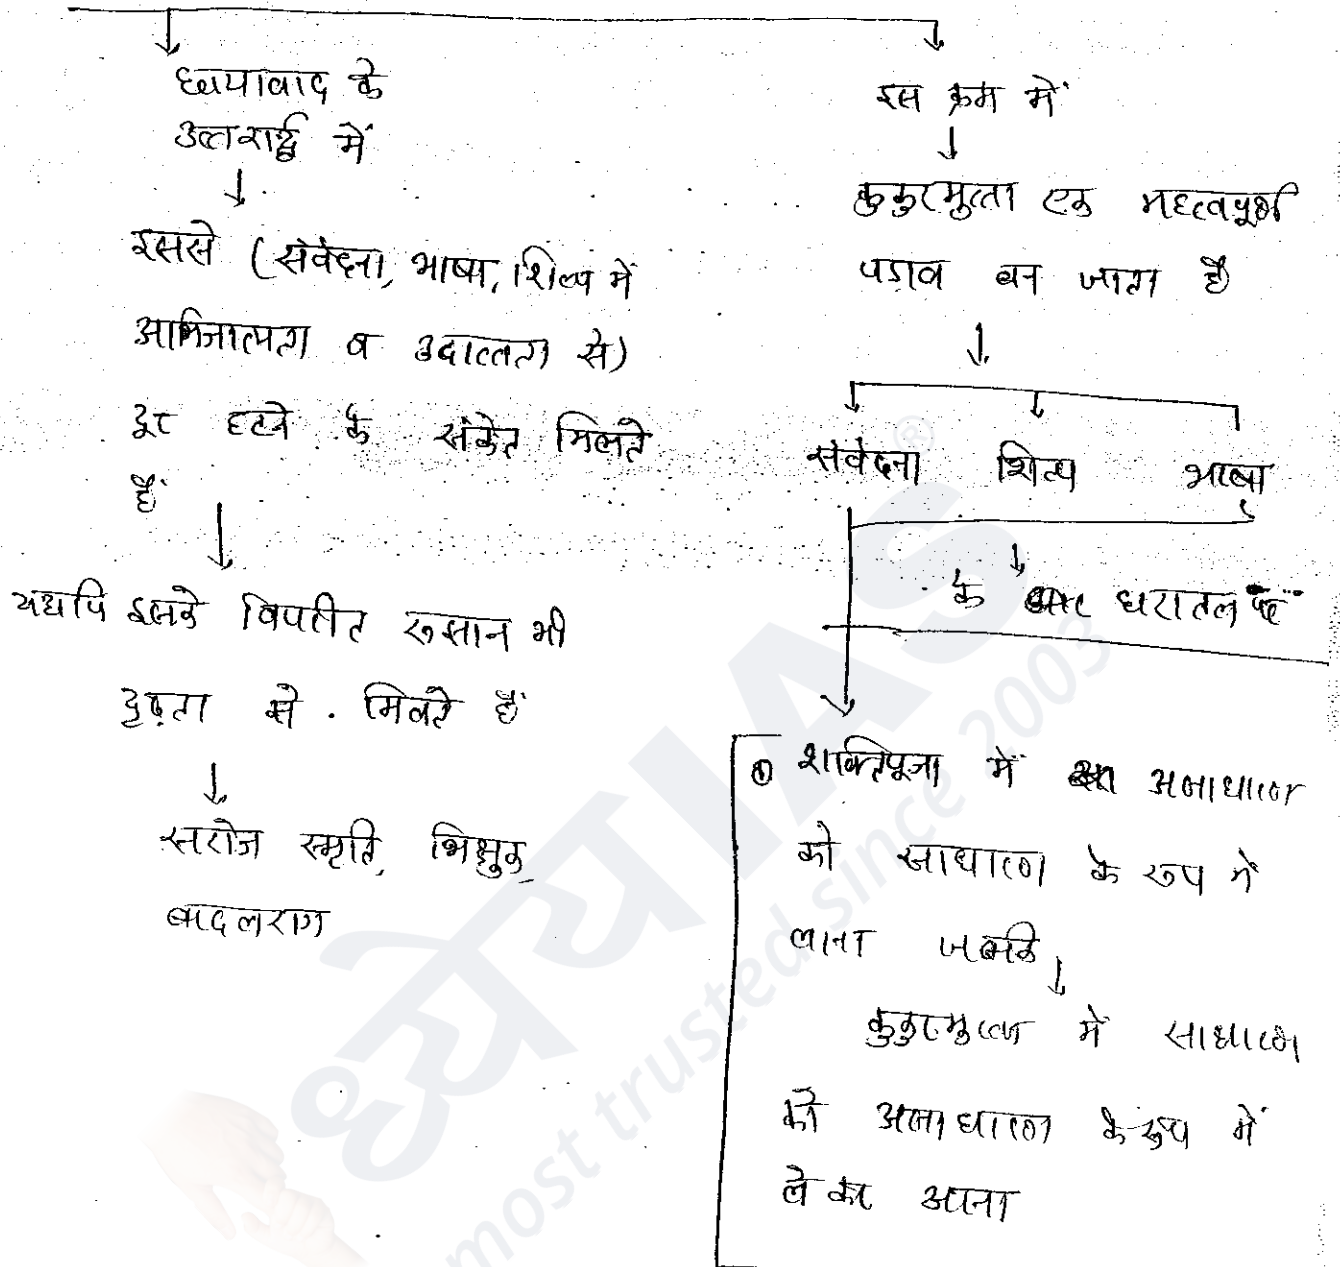 छायावाद के
उत्तरार्द्ध में
इससे (संवेदना, भाषा, शिल्प में
आभिजात्यता व उदात्तता से)
दूर हटने के संकेत मिलते
हैं
यद्यपि इसके विपरीत रुझान भी
दृढ़ता से . मिलते हैं
सरोज स्मृति, भिक्षुक,
बादलराग
इस क्रम में
कुकुरमुत्ता एक महत्वपूर्ण
पड़ाव बन जाता है
संवेदना शिल्प भाषा
के धरातल पर
① शक्तिपूजा में असाधारण
को साधारण के रूप में
लाना जबकि
कुकुरमुत्ता में साधारण
को असाधारण के रूप में
ले कर आना
ध्येय IAS ®
most trusted since 2003